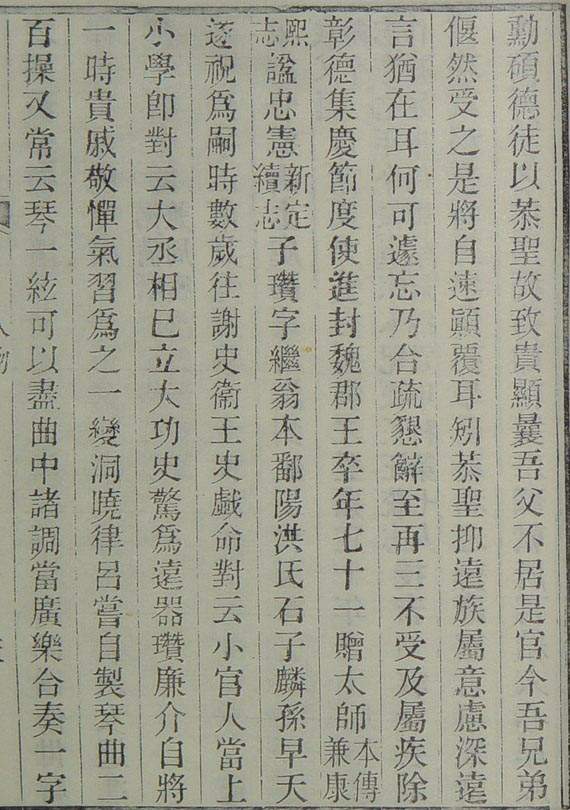 勳碩德徒以恭聖故致貴顯曩吾父不居是官今吾兄弟
偃然受之是將自速顛覆耳矧恭聖抑遠族屬意慮深遠
言猶在耳何可遽忘乃合疏懇辭至再三不受及屬疾除
彰德集慶節度使進封魏郡王卒年七十一贈太師本傳兼康
熙志諡忠憲新定續志子瓚字繼翁本鄱陽洪氏石子麟孫早夭
逐視爲嗣時數歲往謝史衞王史戲命對云小官人當上
小學卽對云大丞相已立大功史驚爲遠器瓚廉介自將
一時貴戚敬憚氣習爲之一變洞曉律呂嘗自製琴曲二
百操又常云琴一絃可以盡曲中諸調當廣樂合奏一字